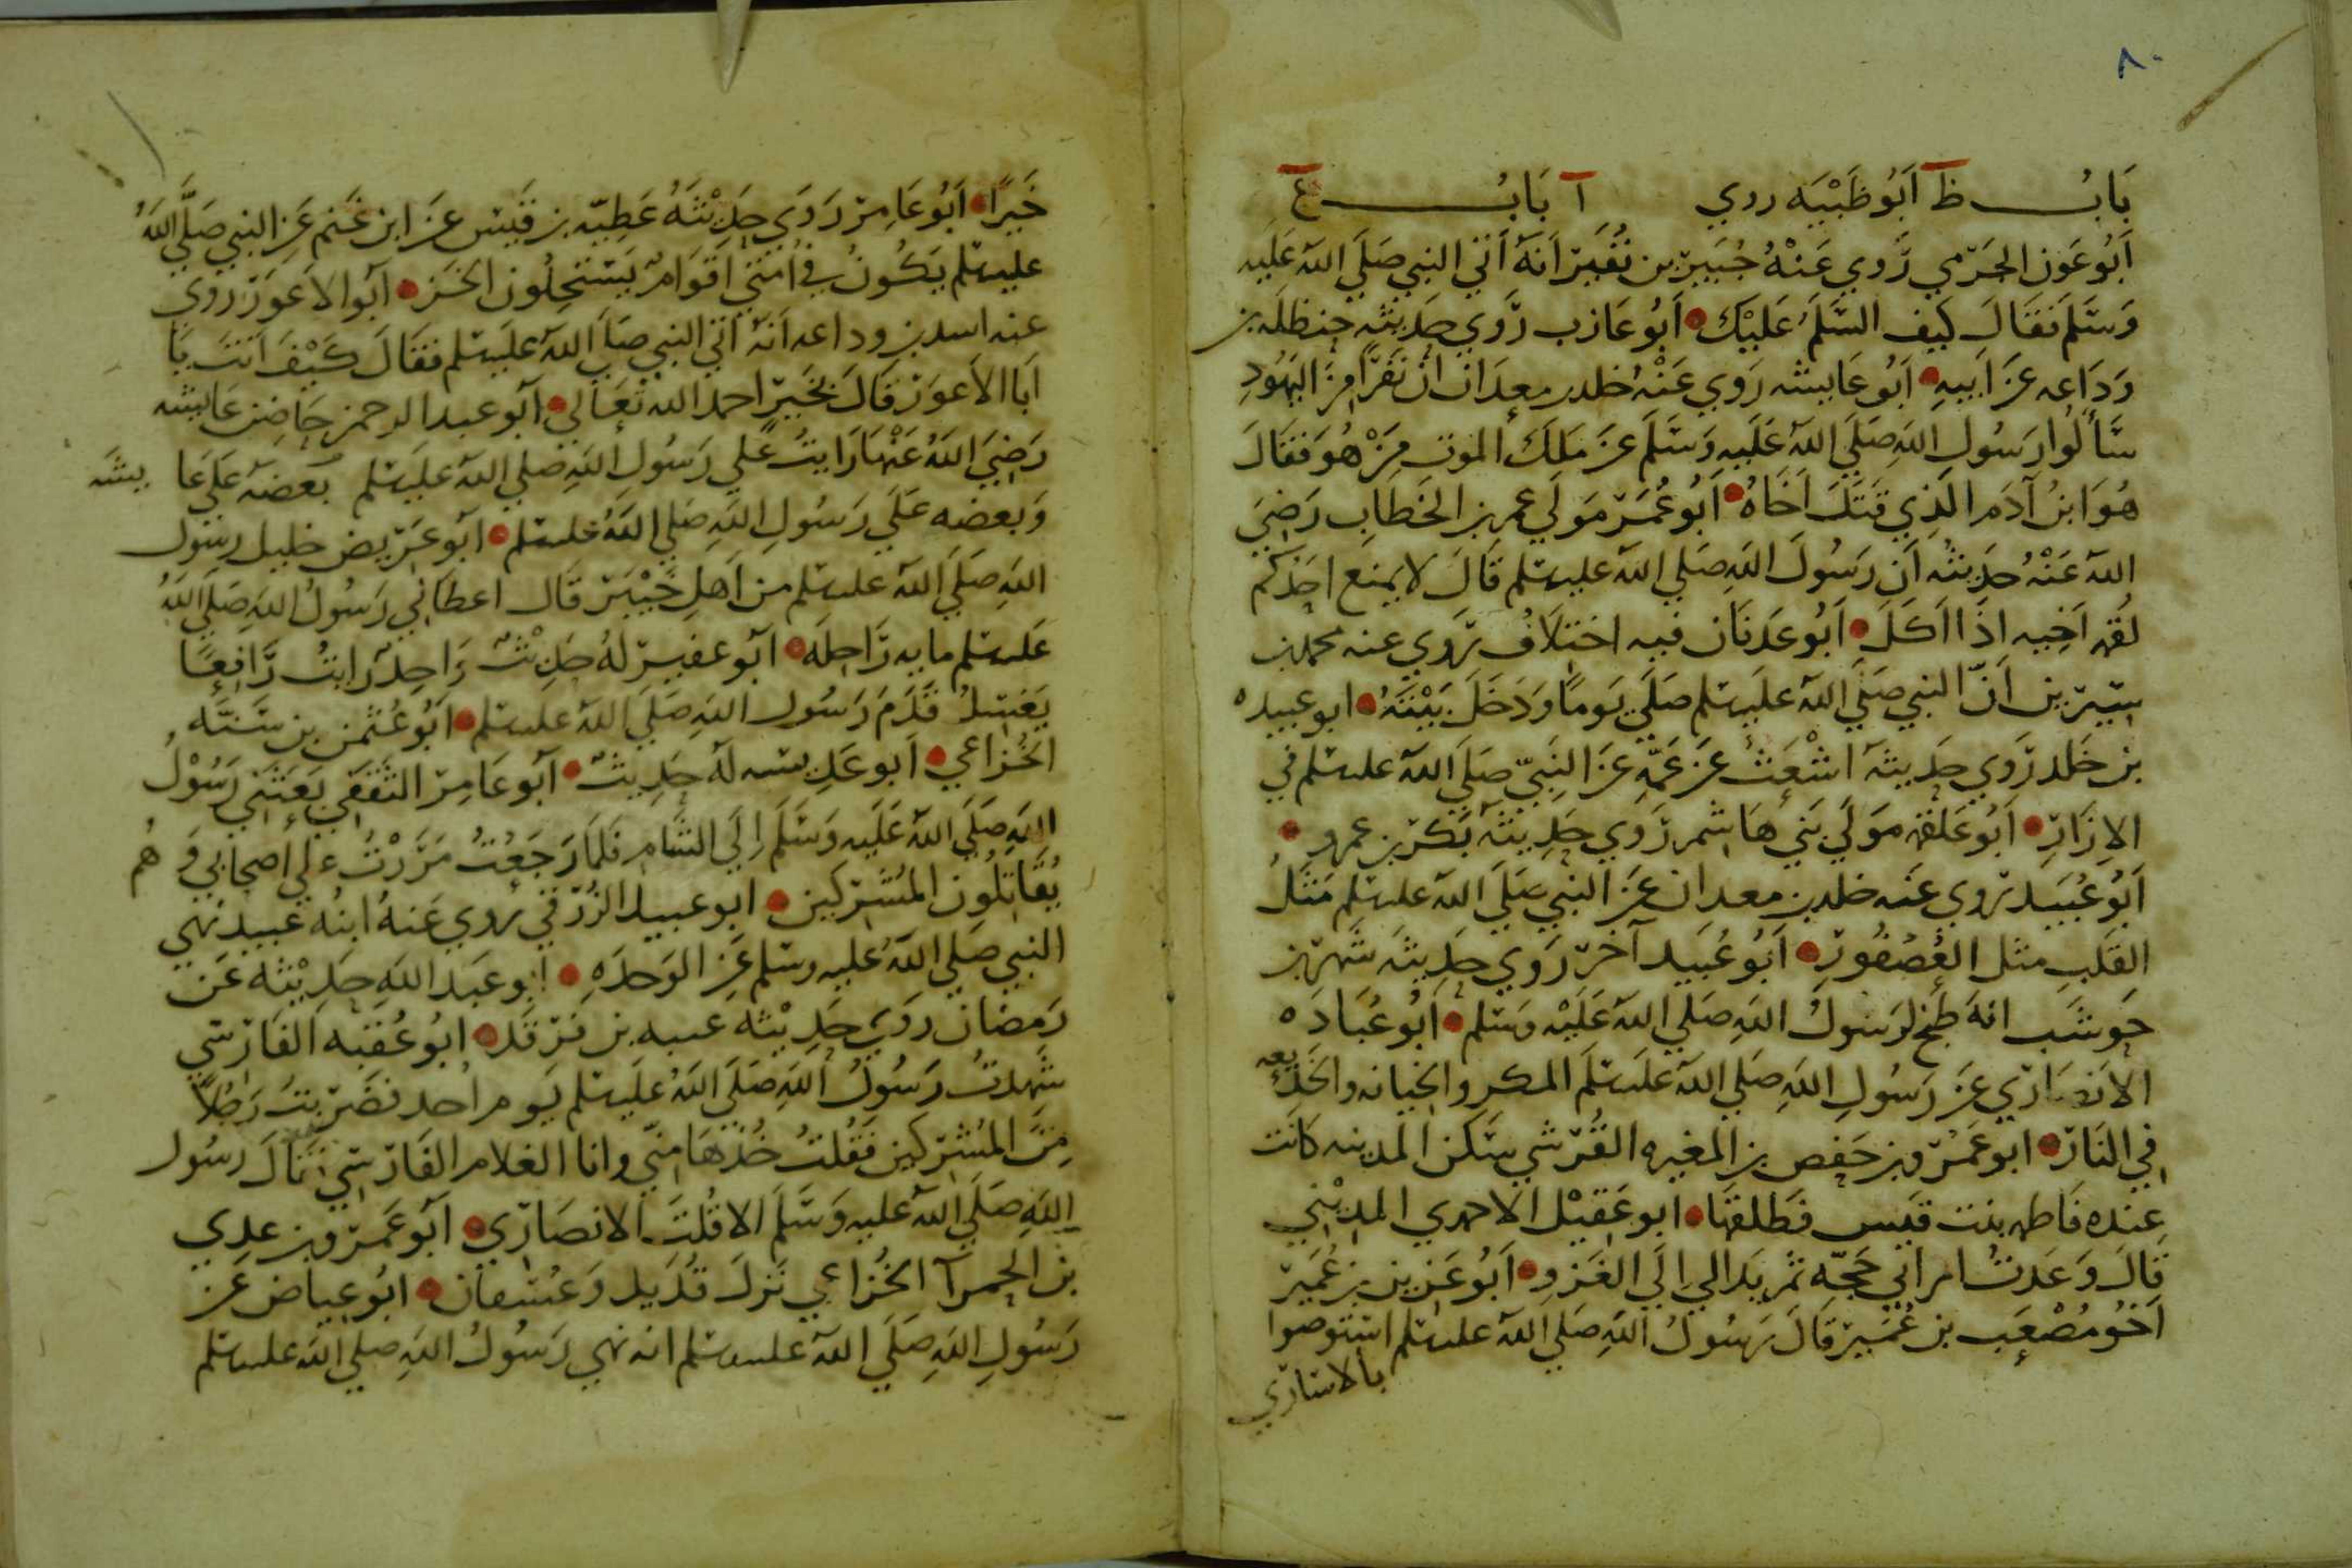 ٨٠
بَابُ ظ اَبُو ظَبْيَه روي آ بَابُ ع
اَبُو عَوَن الجَرْمي رَوي عَنْهُ جُبَيرْ بن نُفَيرْ اَنهُ اَتَي النبي صَلَي اللهُ عَلَيه
وَسَلم فَقَالَ كيف السَّلَمُ عَليْكَ اَبُو عَازب رَوي حَدِيثه حنظله بن
وَدَاعه عَن اَبيهِ اَبُو عَايشه رَوي عَنْهُ خلد بن معدان ان نَفَرًا مِنَ اليَهُودِ
سَألُوا رَسُول اللهِ صَلَي اللهُ عَلَيه وَسَلَم عَن مَلَك الموت مِن هُوَ فَقَالَ
هُوَ ابنُ آدَم الَذِي قَتَلَ اَخَاهُ اَبُو عُمَرْ مَولَي عمر بن الخَطَابِ رَضِيَ
اللهُ عَنْهُ حَدِيثه اَن رَسُولَ اللهِ صَلَي اللهُ عليه سلم قَالَ لا يمنع احَدكم
لَقم اَخِيه اذَا اَكَلَ اَبُو عَدنَان فيه اختلَاف رَوي عنه محمد بن
سيرْين اَنّ النبي صَلَي اللهُ عليه سلم صَلَي يَومًا وَدَخَلَ بَيْتَهُ ابو عبيده
بن خَلد رَوي حَديثه اشْعَث عَن عَمّهِ عَن النَبيّ صَلَي اللهُ عليه سلم في
الازَارِ اَبُو عَلقمه مَولَي بَني هَاشم رَوي حَدِيثهُ بَكرْ بن عمرو
اَبُو عُبَيد روي عَنه خلد بن معدان عَن النبي صَلَي الله عليه سلم مَثلُ
القَلبِ مثل العُصْفُورْ اَبُو عُبَيد آخرْ رَوي حَدِيثه شَهرْ بن
حَوشَب انهُ طَبخ لرَسُولُ اللهِ صَلَي اللهُ عَلَيْه وَسَلم اَبُو عُبَادَه
الانصَارْي عَن رَسُولِ اللهِ صَلي اللهُ عليه سلم المكر والخيانه والخَديعه
في النَارْ ابو عَمرْو بن حَفص بن المغيره القُرشي سَكن المدينه كانت
عِنده فَاطمه بنت قَيس فَطلقهَا ابو عَقيْل الاحمدي المدِيْني
قَالَ وَعَدتُ امراتي حَجّه ثم بَدا لي اِلَي الغَزوِ اَبُو عَزيز بن عُمَيرْ
اَخُو مُصْعَب بن عُمَيرْ قَالَ رَسُولُ اللهِ صَلي اللهُ عليه سلم استوصوا
بالاسَارْي
خَيرًا اَبُو عَامِرْ رَوَي حَدِيْثهُ عَطِيّه بن قَيس عَن ابن غَنم عَن النبي صَلَّي اللهُ
عليه سلم يَكُونُ في اُمتي اَقوَامٌ يَستَحِلُون الخَز اَبُو الاعوَرْ روي
عنه اسد بن وداعه اَنهُ اَتي النبي صَلي اللهُ عليه سلم فقَالَ كَيْفَ اَنتَ يَا
اَبَا الاعوَرْ قَالَ بخَيرْ احمد اللهَ تَعَالي اَبو عبد الرحمن حَاضِن عَايشه
رَضِيَ اللهُ عَنْهَا رَايتُ عَلي رَسُول اللهِ صلي اللهُ عليه سلم بَعضهُ عَلي عَايشَه
وَبعضه عَلَي رَسُولِ اللهِ صَلي اللهُ عليه سلم اَبُو عَرْيض خليل رسُول
اللهِ صَلَي اللهُ عليه سلم من اَهلِ خَيْبَرْ قَال اعطَاني رَسُولُ اللهِ صَلي اللهُ
عَليه سلم مايه رَاحلَه ابُو عفيرْ لهُ حَدِيْثٌ وَاحِدٌ رَايتُ رَافِعًا
يَغتسِلُ قدَّامَ رَسُول اللهِ صَلَي اللهُ عليه سلم ابُو عُثمن بن سَنَّه
الخُزاعي اَبو عَدِيسه لهُ حَدِيثٌ اَبو عَامِرْ الثقفي بَعَثني رَسُوْلُ
اللهِ صَلَي اللهُ عَلَيه وَسَلَم اِلَي الشَّام فَلمَا رَجَعْتُ مَرَرْتُ علي اصحَابي وَهُم
يُقَاتِلُون المُشرِكين ابو عبيد الزُرَقي روي عَنهُ ابنُه عبيد نهي
النبي صَلي اللهُ عليه وسلم عَن الوَحدَهِ ابو عَبد اللهِ حَدِيْثه عَن
رَمضَان رَوَي حَدِيْثه عتبه بن فَرْقَد ابُو عُقبَه الفَارْسي
شَهدتُ رَسُولُ اللهِ صَلَي اللهُ عَليه سلم يَوم اُحد فضَرْبتُ رَجُلًا
مِنَ المُشرِكين فقُلتُ خُذهَا مني وانا الغلام الفَارْسي فقَالَ رسُول
اللهِ صَلَي اللهُ عليه وَسَلَم الا قُلتَ الانصَارْي اَبو عَمرْو بن عدِي
بن الحمرآ الخُزاعي نَزلَ قُدَيد وَعُسفان ابُو عياض عَن
رَسُولِ اللهِ صَلَي اللهُ عليه سلم انه نهي رَسُولُ اللهِ صلي الله عليه سلم